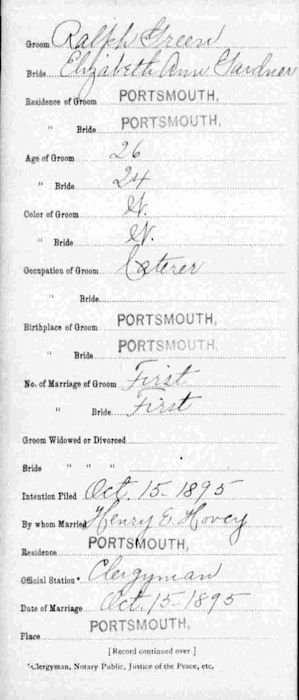 Groom Ralph Green
Bride Elizabeth Ann Gardner
Residence of Groom PORTSMOUTH,
" Bride PORTSMOUTH,
Age of Groom 26
" Bride 24
Color of Groom W.
" Bride W.
Occupation of Groom Caterer
" Bride
Birthplace of Groom PORTSMOUTH,
" Bride PORTSMOUTH,
No. of Marriage of Groom First
" Bride First
Groom Widowed or Divorced
Bride " " "
Intention Filed Oct. 15-1895
By whom Married Henry E. Hovey
Residence PORTSMOUTH,
Official Station*. Clergyman
Date of Marriage Oct. 15-1895
Place PORTSMOUTH,
[Record continued over]
*Clergyman, Notary Public, Justice of the Peace, etc.